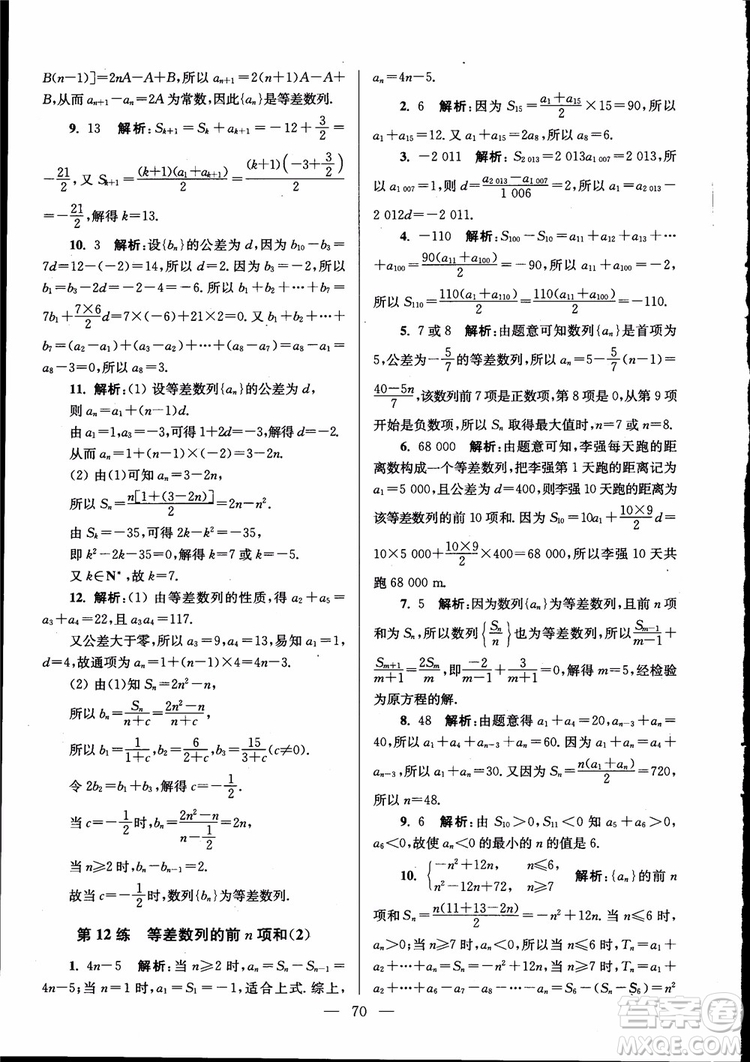 B(n-1)]=2nA-A+B,所以 aₙ₊₁=2(n+1)A-A+
B,从而 aₙ₊₁-aₙ=2A 为常数,因此{aₙ}是等差数列.
9. 13 解析:Sₖ₊₁=Sₖ+aₖ₊₁=-12+3/2=
-21/2,又 Sₖ₊₁=(k+1)(a₁+aₖ₊₁)/2=(k+1)(-3+3/2)/2=
-21/2,解得 k=13.
10. 3 解析:设{bₙ}的公差为 d,因为 b₁₀-b₃=
7d=12-(-2)=14,所以 d=2.因为 b₃=-2,所以
b₁=b₃-2d=-2-4=-6.所以 b₁+b₂+…+b₇=
7b₁+7×6/2 d=7×(-6)+21×2=0.又 b₁+b₂+…+
b₇=(a₂-a₁)+(a₃-a₂)+…+(a₈-a₇)=a₈-a₁=
a₈-3=0,所以 a₈=3.
11. 解析:(1) 设等差数列{aₙ}的公差为 d,
则 aₙ=a₁+(n-1)d.
由 a₁=1,a₃=-3,可得 1+2d=-3,解得 d=-2.
从而 aₙ=1+(n-1)×(-2)=3-2n.
(2) 由(1)可知 aₙ=3-2n,
所以 Sₙ=n[1+(3-2n)]/2=2n-n².
由 Sₖ=-35,可得 2k-k²=-35,
即 k²-2k-35=0,解得 k=7 或 k=-5.
又 k∈N*,故 k=7.
12. 解析:(1) 由等差数列的性质,得 a₂+a₅=
a₃+a₄=22,且 a₃a₄=117.
又公差大于零,所以 a₃=9,a₄=13,易知 a₁=1,
d=4,故通项为 aₙ=4n-3.
(2) 由(1)知 Sₙ=2n²-n,
所以 bₙ=Sₙ/(n+c)=(2n²-n)/(n+c).
所以 b₁=1/(1+c),b₂=6/(2+c),b₃=15/(3+c)(c≠0).
令 2b₂=b₁+b₃,解得 c=-1/2.
当 c=-1/2时,bₙ=(2n²-n)/(n-1/2)=2n,
当 n≥2 时,bₙ-bₙ₋₁=2.
故当 c=-1/2时,数列{bₙ}为等差数列.
第 12 练 等差数列的前 n 项和(2)
1. 4n-5 解析:当 n≥2 时,aₙ=Sₙ-Sₙ₋₁=
4n-5;当 n=1 时,a₁=S₁=-1,适合上式.综上,
aₙ=4n-5.
2. 6 解析:因为 S₁₅=(a₁+a₁₅)/2×15=90,所以
a₁+a₁₅=12.又因为 a₁+a₁₅=2a₈,所以 a₈=6.
3. -2 011 解析:S₂ ₀₁₃=2 013a₁ ₀₀₇=2 013,所
以 a₁ ₀₀₇=1,则 d=(a₂ ₀₁₃-a₁ ₀₀₇)/1 006=-2,所以 a₁=a₂ ₀₁₃-
2 012d=-2 011.
4. -110 解析:S₁₀₀-S₁₀=a₁₁+a₁₂+…
+a₁₀₀=90(a₁₁+a₁₀₀)/2=-90,所以 a₁₁+a₁₀₀=
-2,所以 S₁₁₀=110(a₁+a₁₁₀)/2=110(a₁₁+a₁₀₀)/2=-110.
5. 7 或 8 解析:由题意可知数列{aₙ}是首项为
5,公差为-5/7的等差数列,所以 aₙ=5-5/7(n-1)=
(40-5n)/7,该数列前 7 项是正数项,第 8 项是 0,从第 9 项
开始是负数项,所以 Sₙ 取得最大值时,n=7 或 n=8.
6. 68 000 解析:由题意可知,李强每天跑的距
离数构成一个等差数列,把李强第 1 天跑的距离记为
a₁=5 000,且公差为 d=400,则李强 10 天跑的距离为
该等差数列的前 10 项和.因为 S₁₀=10a₁+10×9/2 d=
10×5 000+10×9/2×400=68 000,所以李强 10 天共
跑 68 000 m.
7. 5 解析:因为数列{aₙ}为等差数列,且前 n 项
和为 Sₙ,所以数列{Sₙ/n}也为等差数列.所以Sₘ₋₁/(m-1)+
Sₘ₊₁/(m+1)=2Sₘ/m,即-2/(m-1)+3/(m+1)=0,解得 m=5,经检验
为原方程的解.
8. 48 解析:由题意得 a₁+a₄=20,aₙ₋₃+aₙ=
40,a₁+a₄+aₙ₋₃+aₙ=60.因为 Sₙ=n(a₁+aₙ)/2=720,
所以 n=48.
9. 6 解析:由 S₁₀>0,S₁₁<0 可知 a₁>0,d<0,
a₆<0,故使 aₙ<0 的最小的 n 的值是 6.
10. {-n²+12n, n≤6, n²-12n+72, n≥7 解析:{aₙ}的前 n
项和 Sₙ=n(11-2n+13)/2=-n²+12n,所以 a₁=11>
0,a₂>0,…,a₆>0,a₇<0,当 n≤6 时,Tₙ=a₁+
a₂+…+aₙ=-n²+12n;当 n≥7 时,Tₙ=a₁+
a₂+…+a₆-a₇-a₈-…-aₙ=S₆-(Sₙ-S₆)=
— 70 —
答案圈
MXQE.COM